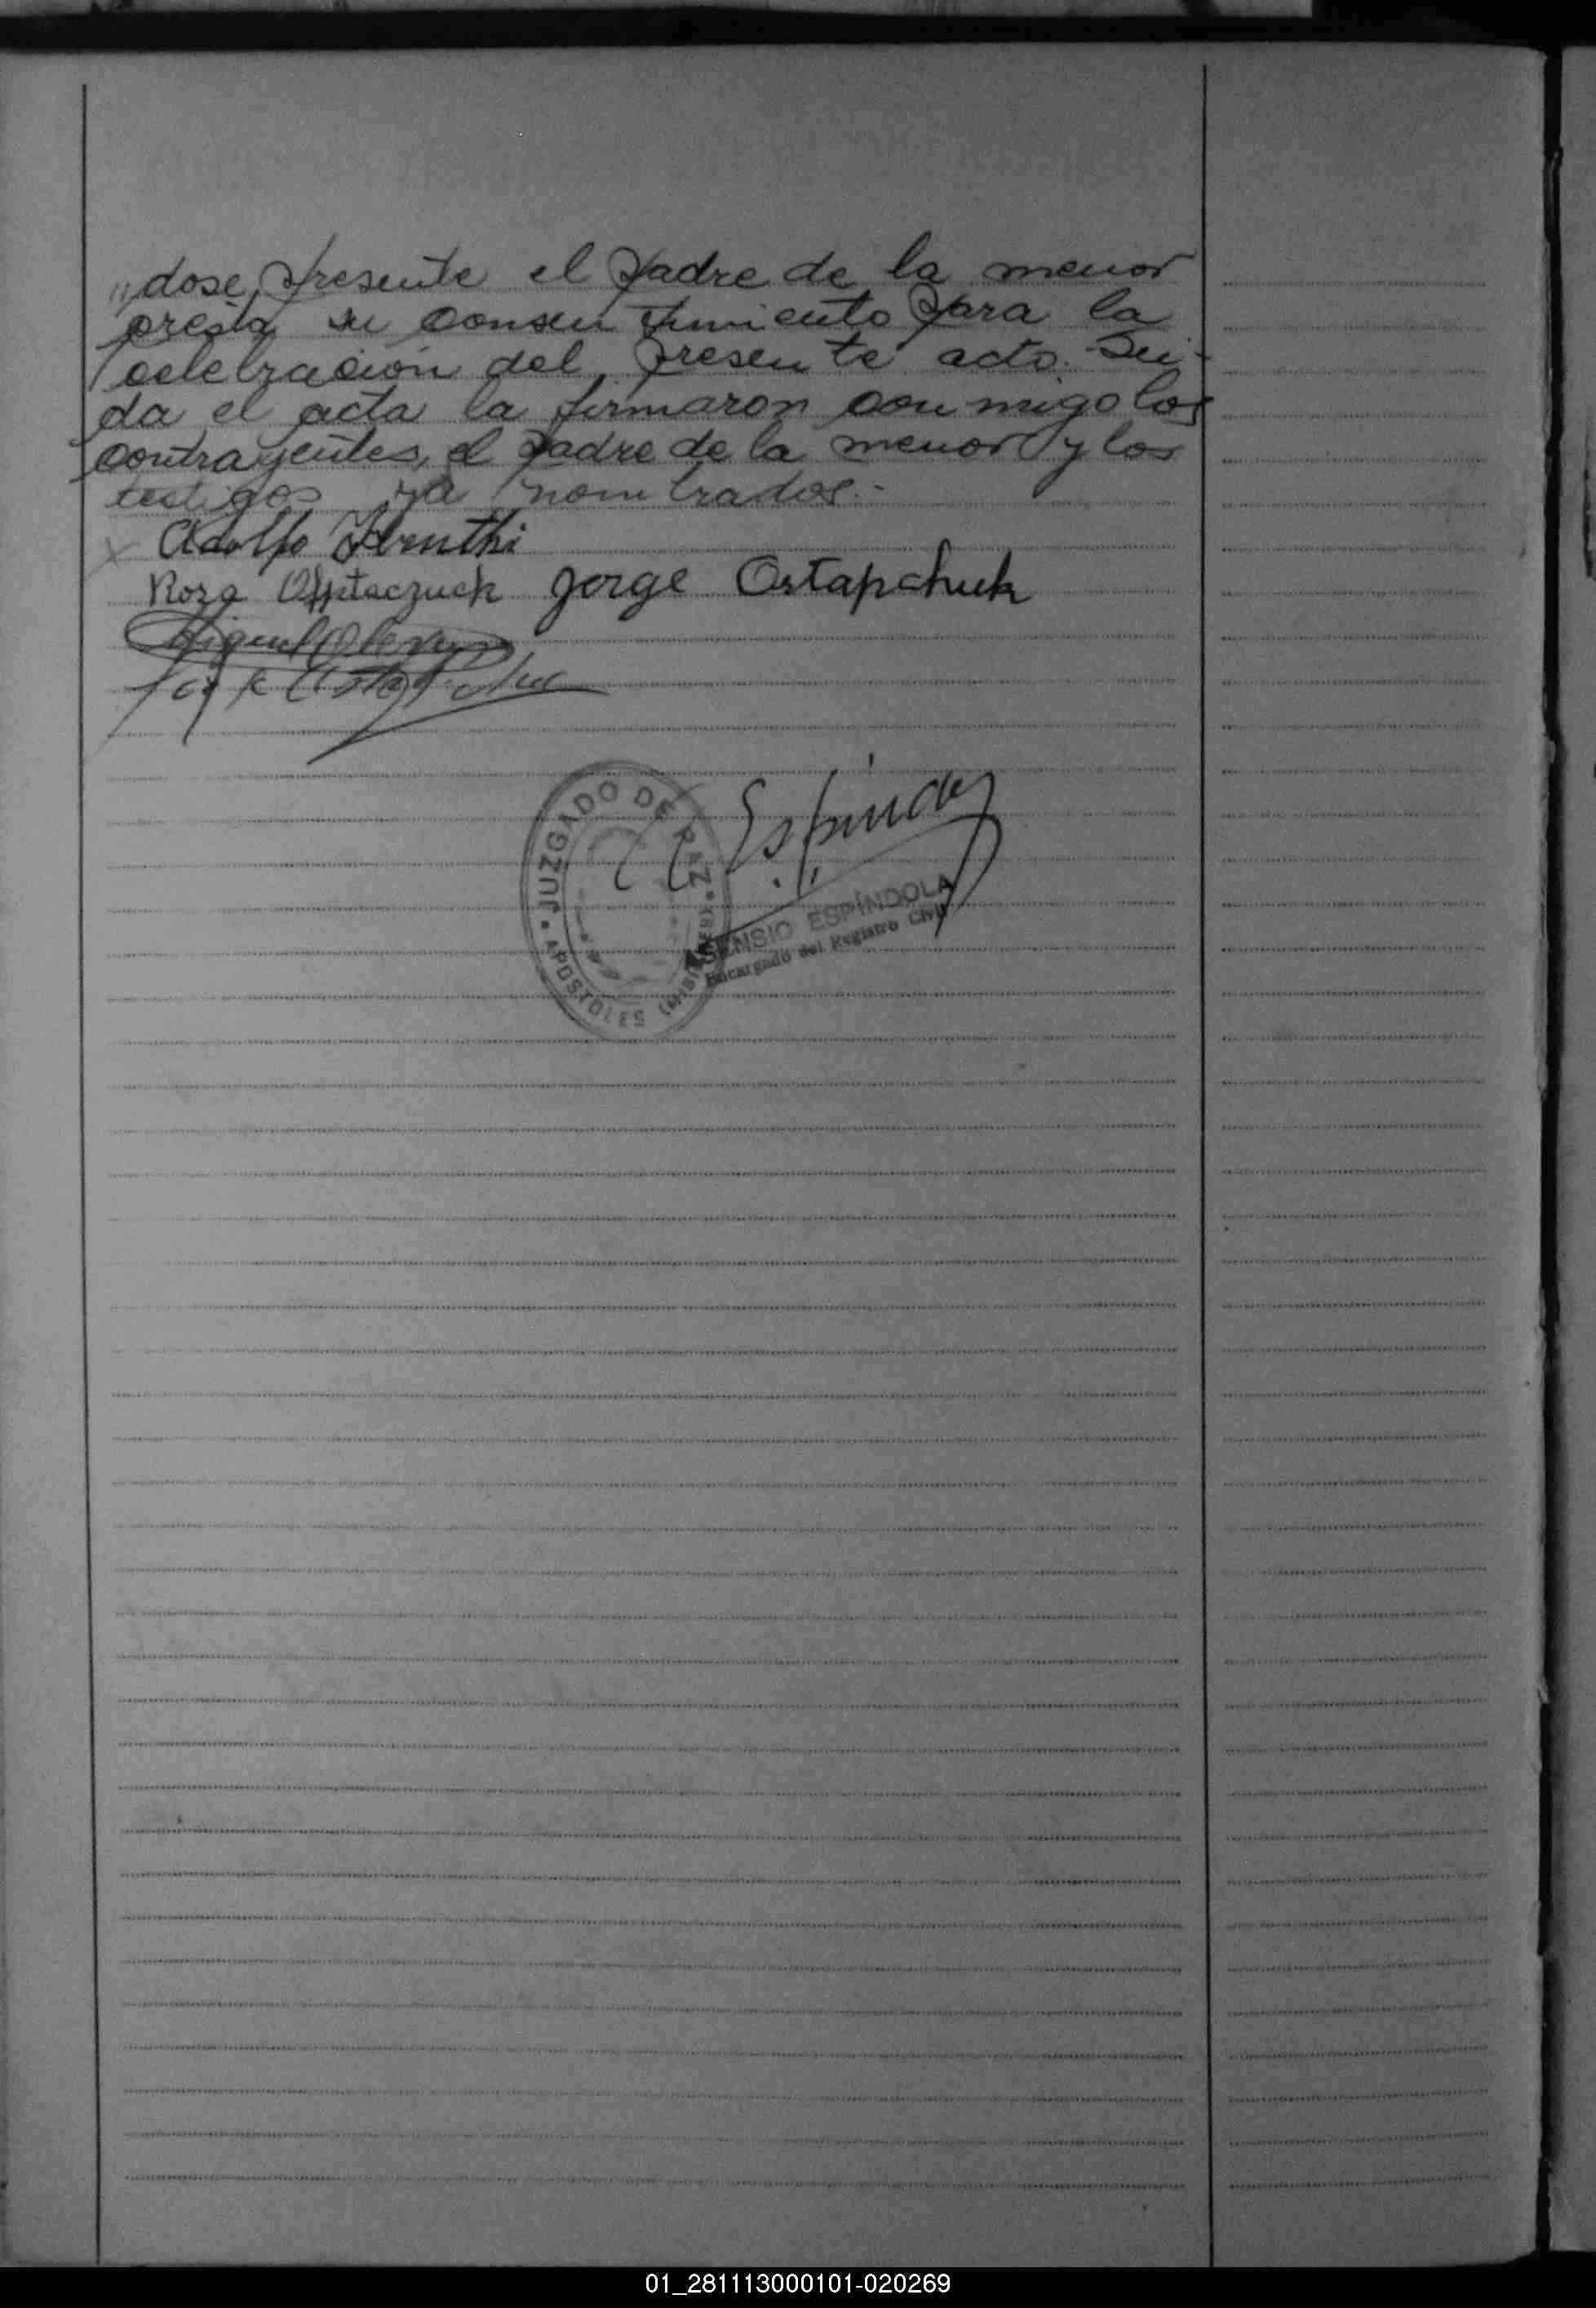 "dose, presente el padre de la menor
presta su consentimiento para la
celebración del presente acto. Lei-
da el acta la firmaron conmigo los
contrayentes, el padre de la menor y los
testigos ya nombrados.-
Adolfo
Roza Jorge Ostapchuk
Miguel
Espindola
JUZGADO DE PAZ
APOSTOLES (MISIONES)
ASENSIO ESPÍNDOLA
Encargado del Registro Civil
01_281113000101-020269